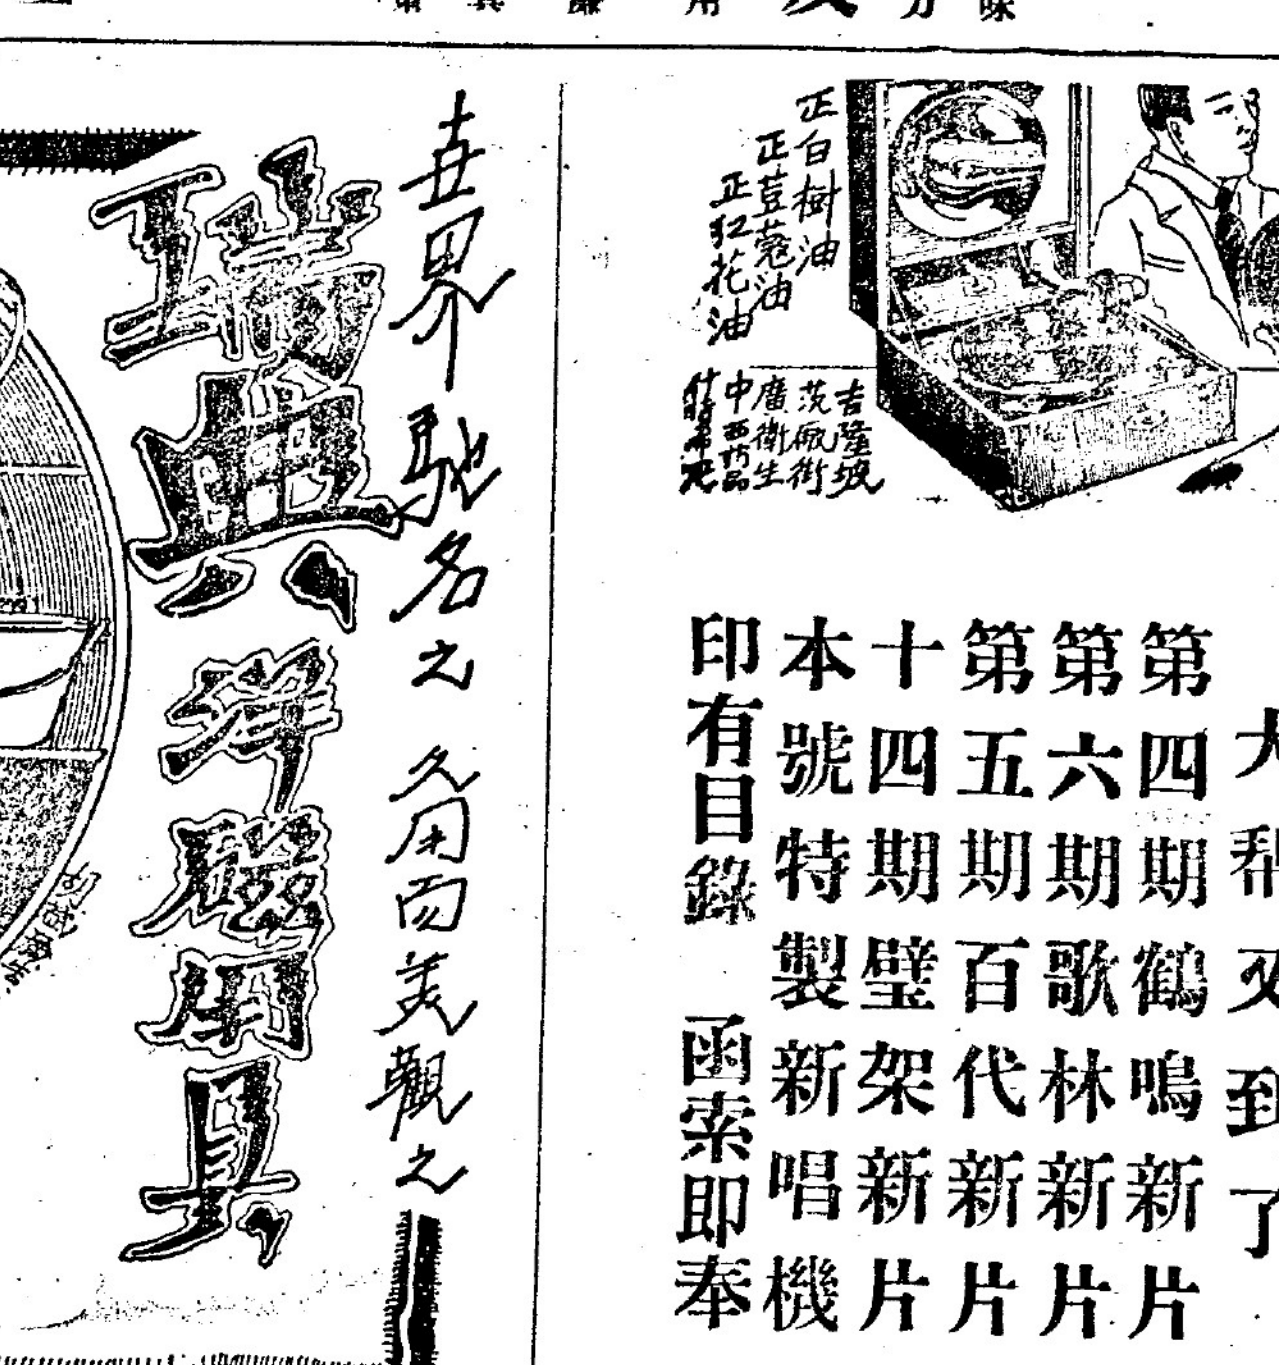 正白樹油
正荳蔻油
正紅花油
吉隆坡
茨厰街
廣衛生
中西葯品
大帮又到了
第四期鶴鳴新片
第六期歌林新片
第五期百代新片
十四期璧架新片
本號特製新唱機
印有目錄 函索即奉
世界馳名之 久用而美觀之
瑞典洋磁用具